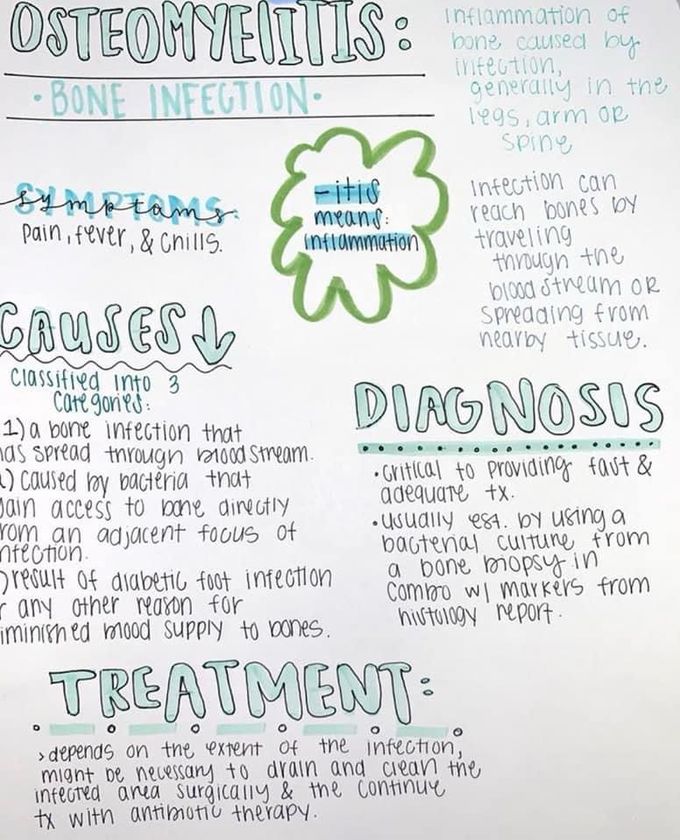 OSTEOMYELITIS:
• BONE INFECTION •
Inflammation of
bone caused by
infection,
generally in the
legs, arm or
spine
Infection can
reach bones by
traveling
through the
bloodstream or
spreading from
nearby tissue.
symptoms:
Pain, fever, & chills.
-itis
means:
inflammation
CAUSES↓
classified into 3
categories:
1) a bone infection that
has spread through bloodstream.
) caused by bacteria that
gain access to bone directly
from an adjacent focus of
infection.
) result of diabetic foot infection
r any other reason for
iminished blood supply to bones.
DIAGNOSIS
• critical to providing fast &
adequate tx.
• usually est. by using a
bacterial culture from
a bone biopsy in
combo w/ markers from
histology report.
TREATMENT:
> depends on the extent of the infection,
might be necessary to drain and clean the
infected area surgically & the continue
tx with antibiotic therapy.